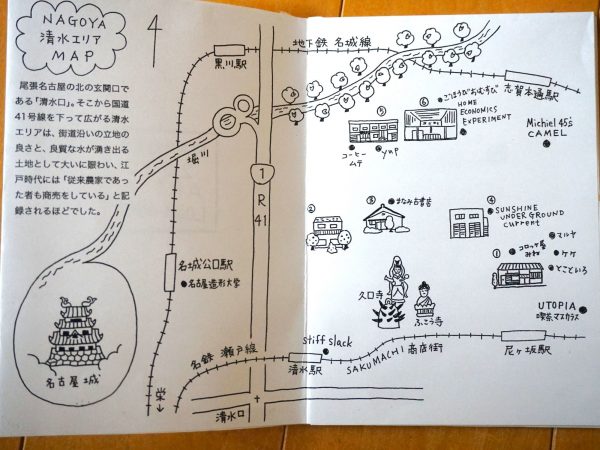 NAGOYA
清水エリア
MAP
尾張名古屋の北の玄関口で
ある「清水口」。そこから国道
41号線を下って広がる清水
エリアは、街道沿いの立地の
良さと、良質な水が湧き出る
土地として大いに賑わい、江
戸時代には「従来農家であっ
た者も商売をしている」と記
録されるほどでした。
4
黒川駅
地下鉄 名城線
志賀本通駅
堀川
1
R
41
名城公口駅
名古屋造形大学
名古屋城
名鉄 瀬戸線
栄
↓
清水口
stiff slack
清水駅
SAKUMACHI 商店街
尼ヶ坂駅
⑤
コーヒー
ムテ
yup
⑥
ごほうびおむすび
HOME
ECONOMICS
EXPERIMENT
Michiel 45's
CAMEL
②
③
まなみ古書店
④
SUNSHINE
UNDERGROUND
current
マルヤ
①
コロッケ屋
みね
ケケ
どこといろ
久口寺
ふこう寺
UTOPIA
喫茶マスカラス